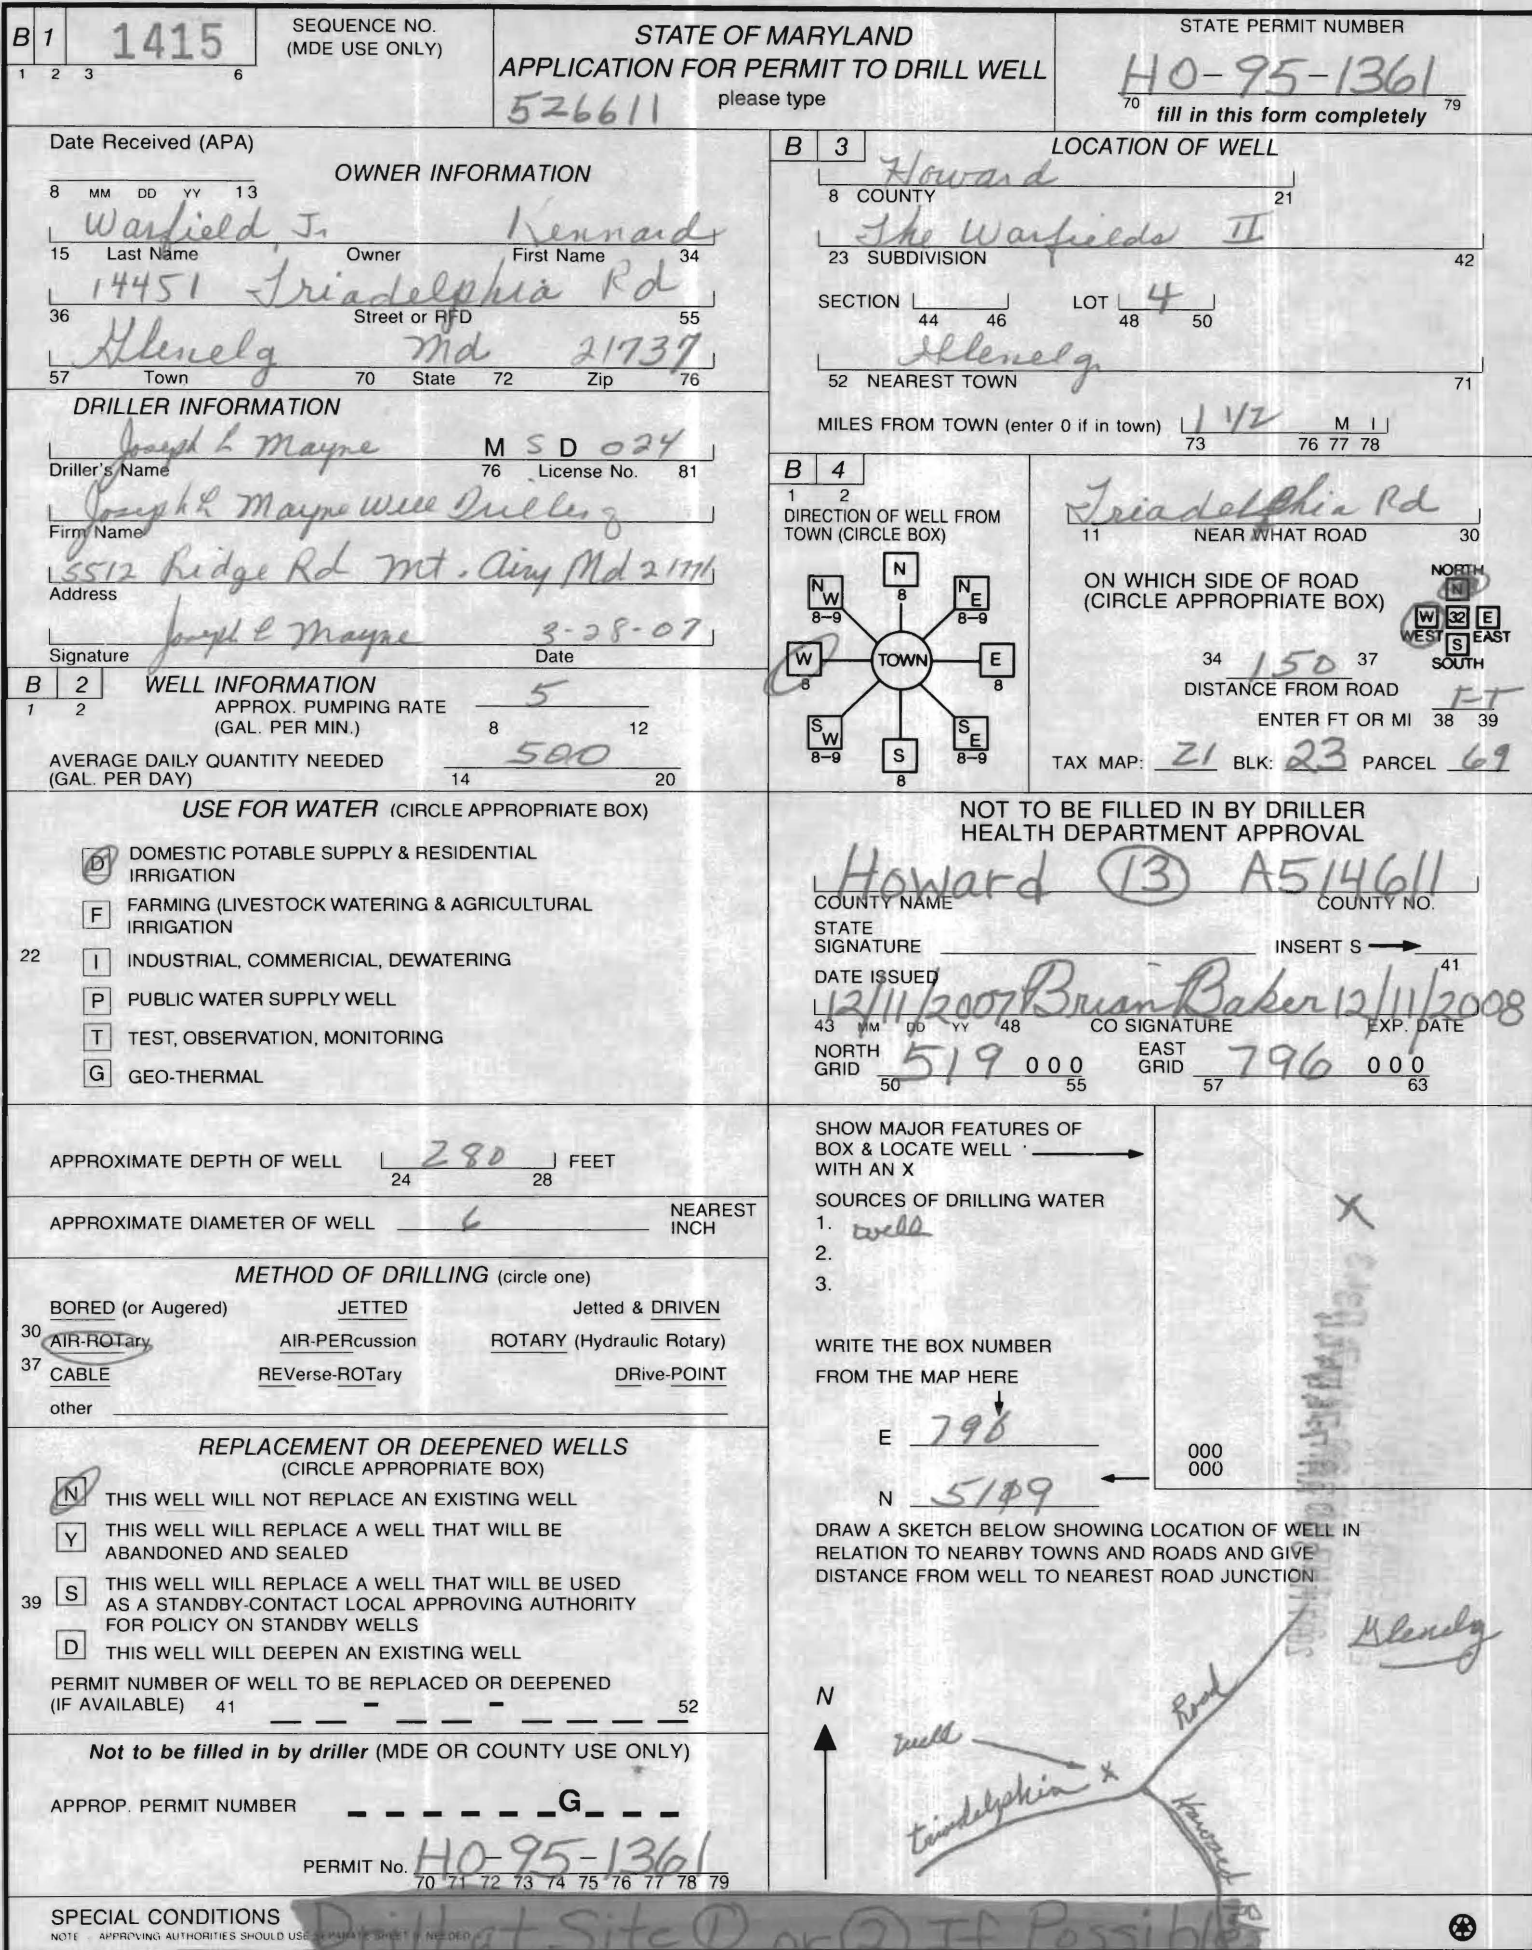 B 1 1415
1 2 3 6
SEQUENCE NO.
(MDE USE ONLY)
STATE OF MARYLAND
APPLICATION FOR PERMIT TO DRILL WELL
526611 please type
STATE PERMIT NUMBER
HO-95-1361
70 79
fill in this form completely
Date Received (APA)
OWNER INFORMATION
8 MM DD YY 13
Warfield, Jr. Kennard
15 Last Name Owner First Name 34
14451 Triadelphia Rd
36 Street or RFD 55
Glenelg Md 21737
57 Town 70 State 72 Zip 76
DRILLER INFORMATION
Joseph L Mayne M S D 024
Driller's Name 76 License No. 81
Joseph L Mayne Well Drilling
Firm Name
5512 Ridge Rd Mt. Airy Md 21771
Address
Joseph L Mayne 3-28-07
Signature Date
B 2 WELL INFORMATION
1 2
APPROX. PUMPING RATE 5
(GAL. PER MIN.) 8 12
AVERAGE DAILY QUANTITY NEEDED 500
(GAL. PER DAY) 14 20
USE FOR WATER (CIRCLE APPROPRIATE BOX)
D DOMESTIC POTABLE SUPPLY & RESIDENTIAL
IRRIGATION
F FARMING (LIVESTOCK WATERING & AGRICULTURAL
IRRIGATION
22 I INDUSTRIAL, COMMERICIAL, DEWATERING
P PUBLIC WATER SUPPLY WELL
T TEST, OBSERVATION, MONITORING
G GEO-THERMAL
APPROXIMATE DEPTH OF WELL 280 FEET
24 28
APPROXIMATE DIAMETER OF WELL 6 NEAREST
INCH
METHOD OF DRILLING (circle one)
BORED (or Augered) JETTED Jetted & DRIVEN
30 AIR-ROTary AIR-PERcussion ROTARY (Hydraulic Rotary)
37 CABLE REVerse-ROTary DRive-POINT
other
REPLACEMENT OR DEEPENED WELLS
(CIRCLE APPROPRIATE BOX)
N THIS WELL WILL NOT REPLACE AN EXISTING WELL
Y THIS WELL WILL REPLACE A WELL THAT WILL BE
ABANDONED AND SEALED
39 S THIS WELL WILL REPLACE A WELL THAT WILL BE USED
AS A STANDBY-CONTACT LOCAL APPROVING AUTHORITY
FOR POLICY ON STANDBY WELLS
D THIS WELL WILL DEEPEN AN EXISTING WELL
PERMIT NUMBER OF WELL TO BE REPLACED OR DEEPENED
(IF AVAILABLE) 41 - - 52
Not to be filled in by driller (MDE OR COUNTY USE ONLY)
APPROP. PERMIT NUMBER G
PERMIT No. HO-95-1361
70 71 72 73 74 75 76 77 78 79
B 3 LOCATION OF WELL
Howard
8 COUNTY 21
The Warfields II
23 SUBDIVISION 42
SECTION LOT 4
44 46 48 50
Glenelg
52 NEAREST TOWN 71
MILES FROM TOWN (enter 0 if in town) 1 1/2 M I
73 76 77 78
B 4
1 2
DIRECTION OF WELL FROM
TOWN (CIRCLE BOX)
N
8
NW
8-9
NE
8-9
W
8
TOWN
E
8
SW
8-9
S
8
SE
8-9
Triadelphia Rd
11 NEAR WHAT ROAD 30
ON WHICH SIDE OF ROAD
(CIRCLE APPROPRIATE BOX)
NORTH
N
W 32 E
WEST S EAST
SOUTH
34 150 37
DISTANCE FROM ROAD
ENTER FT OR MI FT
38 39
TAX MAP: 21 BLK: 23 PARCEL 69
NOT TO BE FILLED IN BY DRILLER
HEALTH DEPARTMENT APPROVAL
Howard 13 A514611
COUNTY NAME COUNTY NO.
STATE
SIGNATURE INSERT S
41
DATE ISSUED
12/11/2007 Brian Baker 12/11/2008
43 MM DD YY 48 CO SIGNATURE EXP. DATE
NORTH GRID 519 000 EAST GRID 796 000
50 55 57 63
SHOW MAJOR FEATURES OF
BOX & LOCATE WELL
WITH AN X
X
SOURCES OF DRILLING WATER
1. well
2.
3.
WRITE THE BOX NUMBER
FROM THE MAP HERE
E 796
N 519
000
000
DRAW A SKETCH BELOW SHOWING LOCATION OF WELL IN
RELATION TO NEARBY TOWNS AND ROADS AND GIVE
DISTANCE FROM WELL TO NEAREST ROAD JUNCTION
Glenelg
N
Road
well
X
triadelphia
Howard Rd
SPECIAL CONDITIONS Drill at Site 1 or 2 If Possible
NOTE APPROVING AUTHORITIES SHOULD USE SEPARATE SHEET IF NEEDED